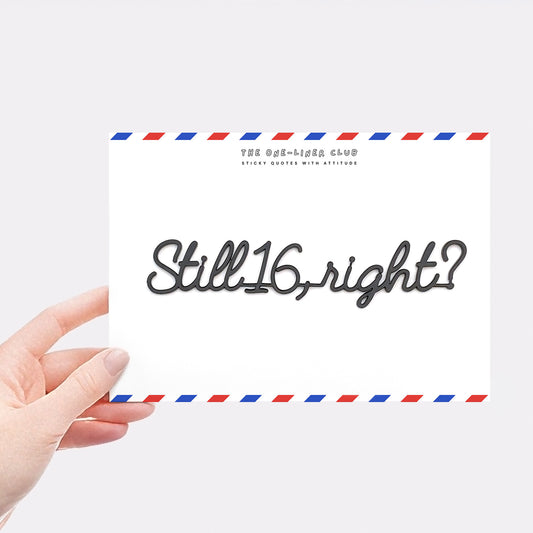 THE ONE-LINER CLUB
STICKY QUOTES WITH ATTITUDE
Still 16, right?